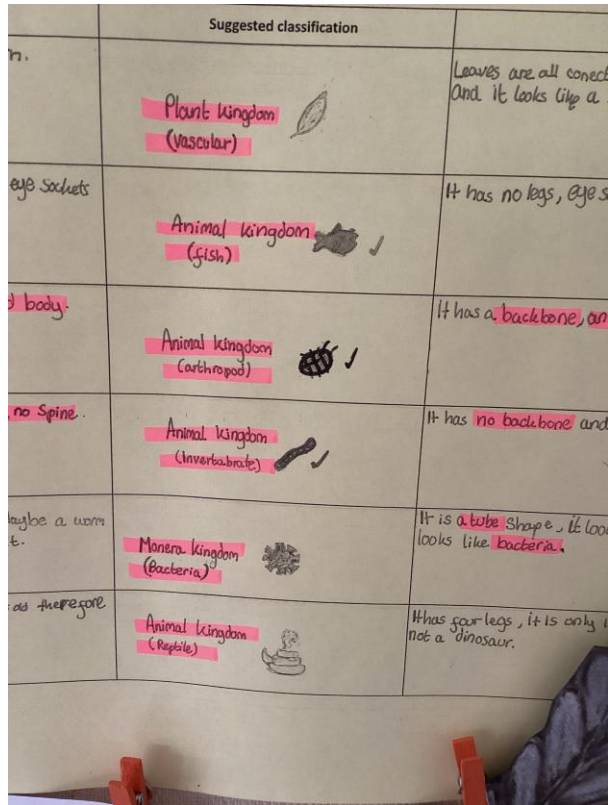 Suggested classification
n.
Plant kingdom
(vascular)
Leaves are all conect
And it looks like a
eye sockets
Animal kingdom
(fish)
It has no legs, eye s
body.
Animal kingdom
(arthropod)
It has a backbone, an
no Spine.
Animal kingdom
(Invertabrate)
It has no backbone and
aybe a worm
t.
Monera kingdom
(Bacteria)
It is a tube shape, it loo
looks like bacteria.
as therefore
Animal kingdom
(Reptile)
It has four legs, it is only i
not a dinosaur.